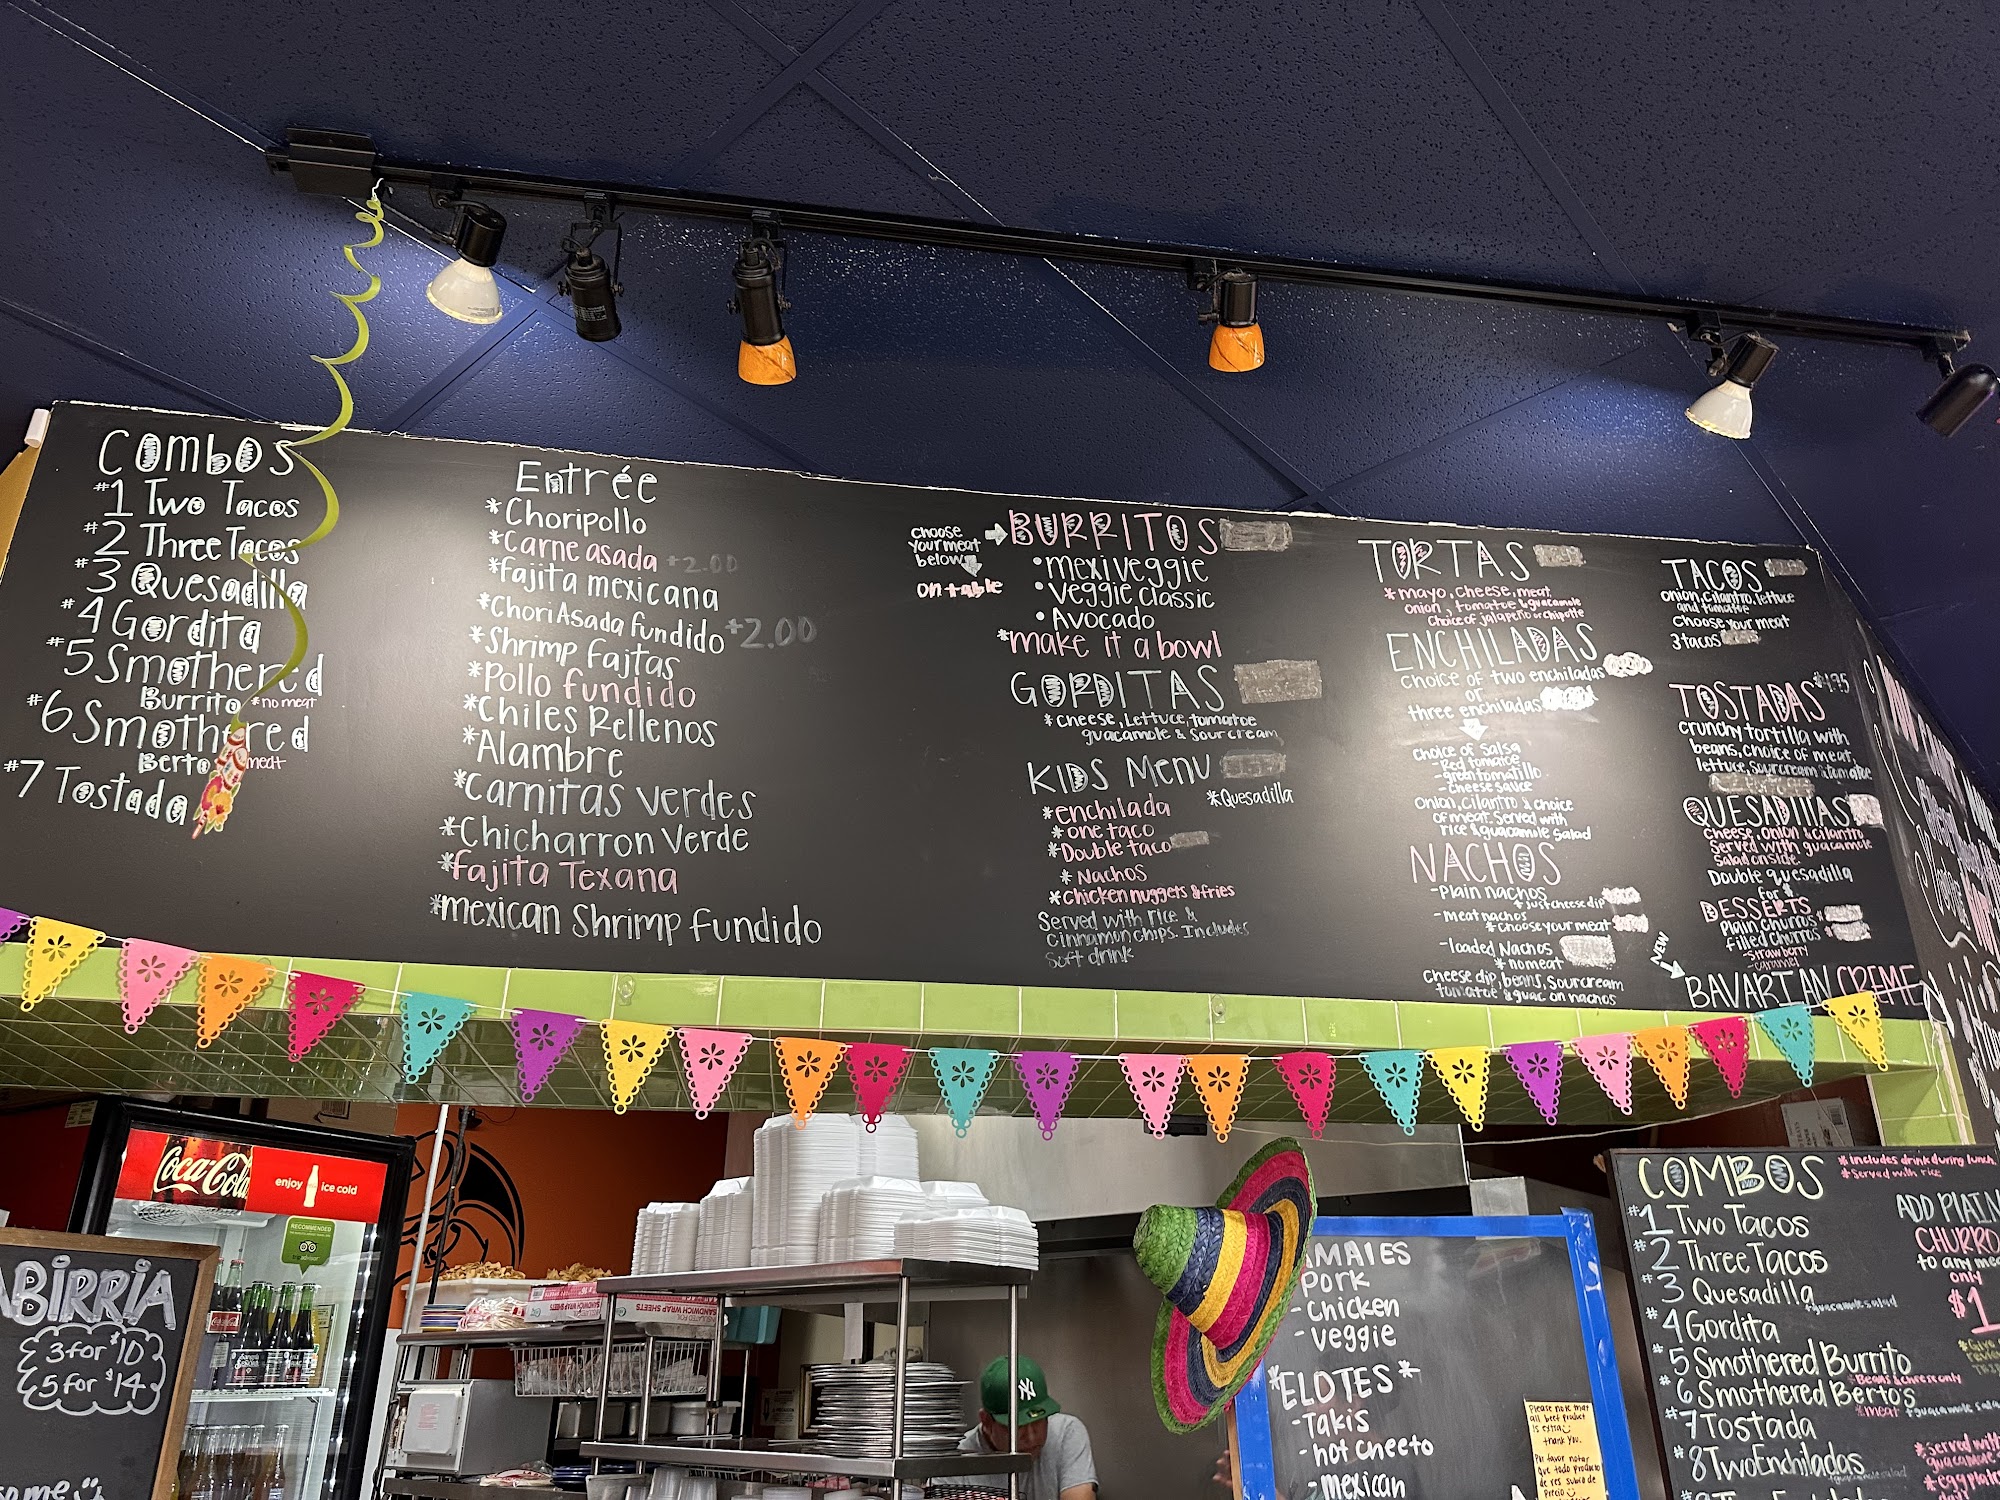 Combos
#1 Two Tacos
#2 Three Tacos
#3 Quesadilla
#4 Gordita
#5 Smothered
Burrito *no meat
#6 Smothered
Berto meat
#7 Tostada
Entrée
*Choripollo
*Carne asada +2.00
*fajita mexicana
*Chori Asada fundido +2.00
*Shrimp Fajtas
*Pollo fundido
*Chiles Rellenos
*Alambre
*Carnitas verdes
*Chicharron Verde
*fajita Texana
*mexican Shrimp Fundido
choose
your meat
below
on table
BURRITOS
• mexiveggie
• veggie classic
• Avocado
*make it a bowl
GORDITAS
*cheese, Lettuce, tomatoe
guacamole & Sour cream
KIDS Menu
*enchilada
*Quesadilla
*one taco
*Double taco
*Nachos
*chicken nuggets & fries
Served with rice &
cinnamon chips. Includes
Soft drink
TORTAS
*mayo, cheese, meat
onion, tomatoe & guacamole
choice of jalapeño or chipotle
ENCHILADAS
choice of two enchiladas
or
three enchiladas
choice of Salsa
- Red tomatoe
- green tomatillo
- cheese sauce
onion, cilantro & choice
of meat. Served with
rice & guacamole Salad
NACHOS
- Plain nachos
*Just cheese dip
- meat nachos
*choose your meat
- loaded Nachos
*no meat
Cheese dip, beans, Sourcream
tomatoe & guac. on nachos
TACOS
onion, cilantro, lettuce
and tomatoe
choose your meat
3 tacos
TOSTADAS $4.95
crunchy tortilla with
beans, choice of meat,
lettuce, sourcream & tomatoe
QUESADILLAS
cheese, onion & cilantro
Served with guacamole
Salad on side.
Double quesadilla
for
DESSERTS
Plain churros
filled churros
- Strawberry
- caramel
NEW
BAVARIAN CREME
Coca-Cola
enjoy ice cold
RECOMMENDED
BIRRIA
3 for $10
5 for $14
SANDWICH WRAP SHEETS
AMALES
Pork
- Chicken
- Veggie
*ELOTES*
- Takis
- hot cheeto
- mexican
Please note that
all beef product
is extra
thank you.
Por favor notar
que todo producto
de res subio de
precio
COMBOS
*includes drink during lunch.
*Served with rice
#1 Two Tacos
#2 Three Tacos
#3 Quesadilla
+guacamole salad
#4 Gordita
#5 Smothered Burrito
*Beans & cheese only
#6 Smothered Berto's
*meat +guacamole
#7 Tostada
#8 Two Enchiladas
+guacamole salad
ADD PLAIN
CHURRO
to any
only
$1